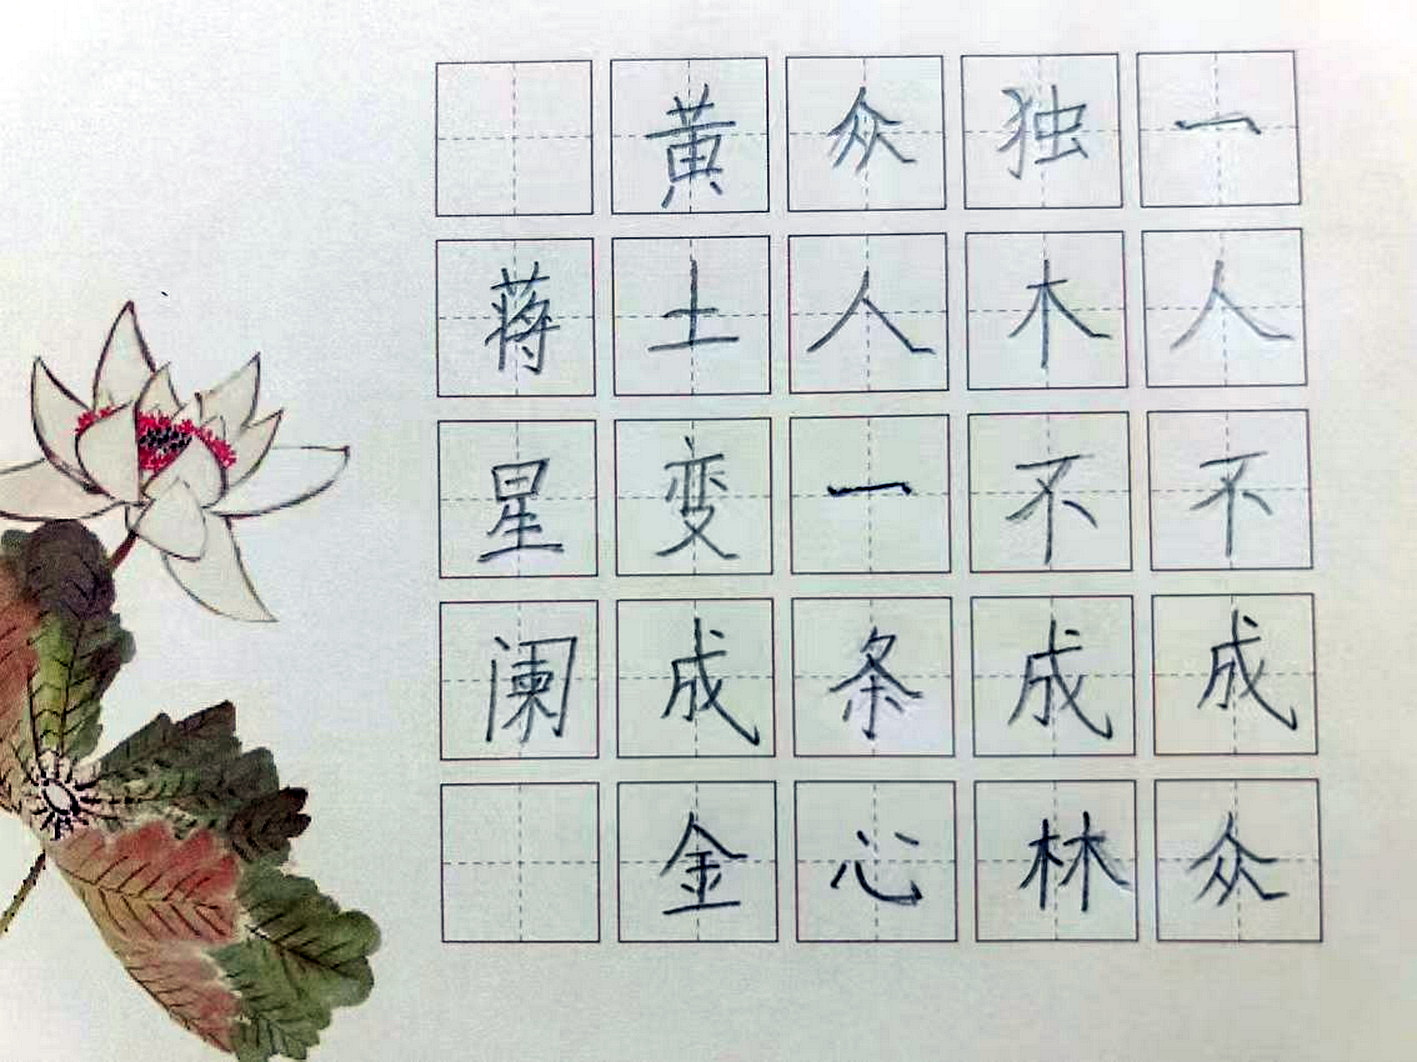 一人不成众
独木不成林
众人一条心
黄土变成金
蒋星阑